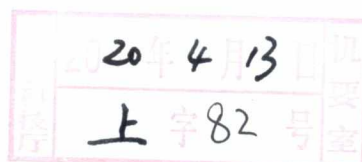 20年4月13日
上字82号
机要室